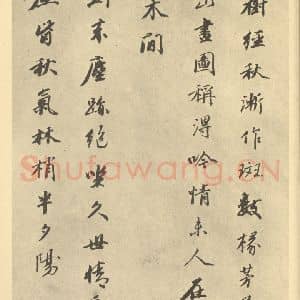 樹經秋漸作斑數椽芳
畫圖稱得吟情人在
木間
来塵跡絕坐久世情
皆秋氣林梢半夕陽
Shufawang.CN